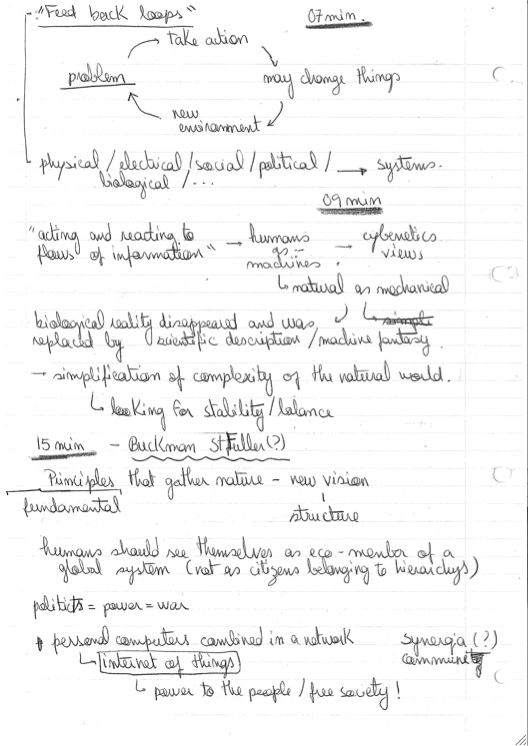 "Feed back loops"
07 min.
take action
problem
may change things
new
environment
physical / electrical / social / political / → systems.
biological / ...
09 min
"acting and reacting to
flows of information" → humans as machines. → cybenetics views
↳ natural as mechanical
biological reality disappeared and was
replaced by scientific description / machine fantasy.
→ simplification of complexity of the natural world.
↳ looking for stability / balance
15 min - Buckman St Fuller (?)
Principles that gather nature - new vision
fundamental
structure
humans should see themselves as eco-member of a
global system (not as citizens belonging to hierarchys)
politics = power = war
personal computers combined in a network
synergia (?)
community
↳ internet of things
↳ power to the people / free society !